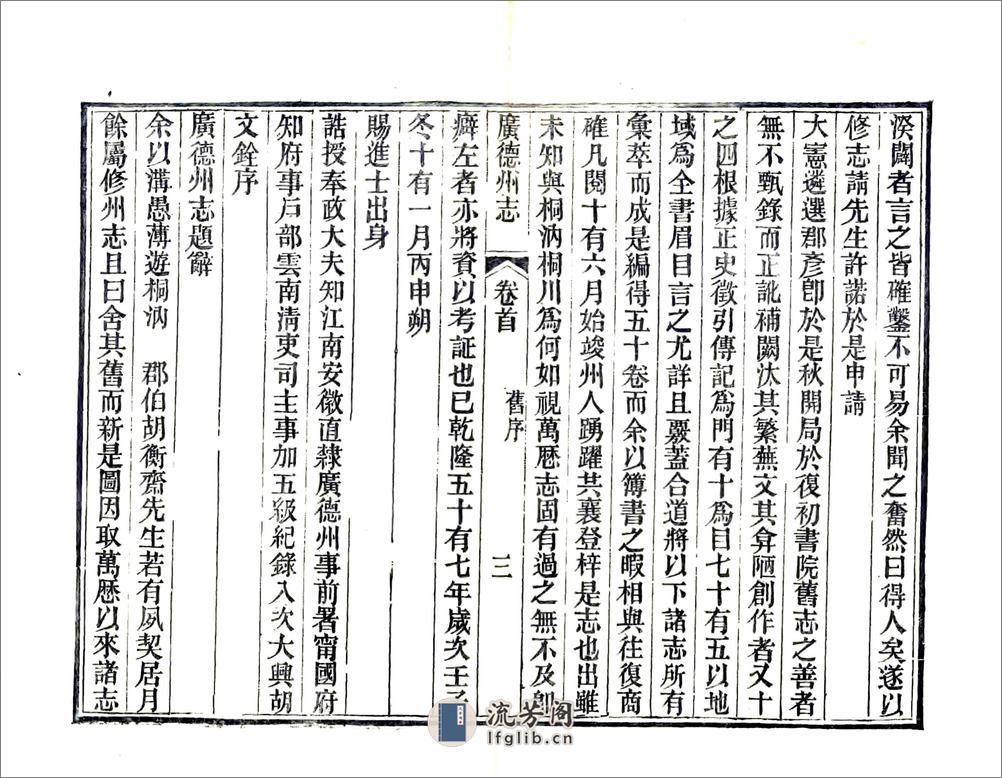 湀闢者言之皆確鑿不可易余聞之奮然曰得人矣遂以
修志請先生許諾於是申請
大憲遴選郡彥卽於是秋開局於復初書院舊志之善者
無不甄錄而正訛補闕汰其繁蕪文其弇陋創作者又十
之四根據正史徵引傳記爲門有十爲目七十有五以地
域爲全書眉目言之尤詳且覈蓋合道將以下諸志所有
彙萃而成是編得五十卷而余以簿書之暇相與往復商
確凡閱十有六月始竣州人踴躍共襄登梓是志也出雖
未知與桐汭桐川爲何如視萬厯志固有過之無不及卽
廣德州志 卷首 舊序 三
癖左者亦將資以考証也已乾隆五十有七年歲次壬子
冬十有一月丙申朔
賜進士出身
誥授奉政大夫知江南安徽直隸廣德州事前署甯國府
知府事戶部雲南淸吏司主事加五級紀錄入次大興胡
文銓序
廣德州志題辭
余以溝愚薄遊桐汭 郡伯胡衡齋先生若有夙契居月
餘屬修州志且曰舍其舊而新是圖因取萬厯以來諸志
流芳阁
lfglib.cn